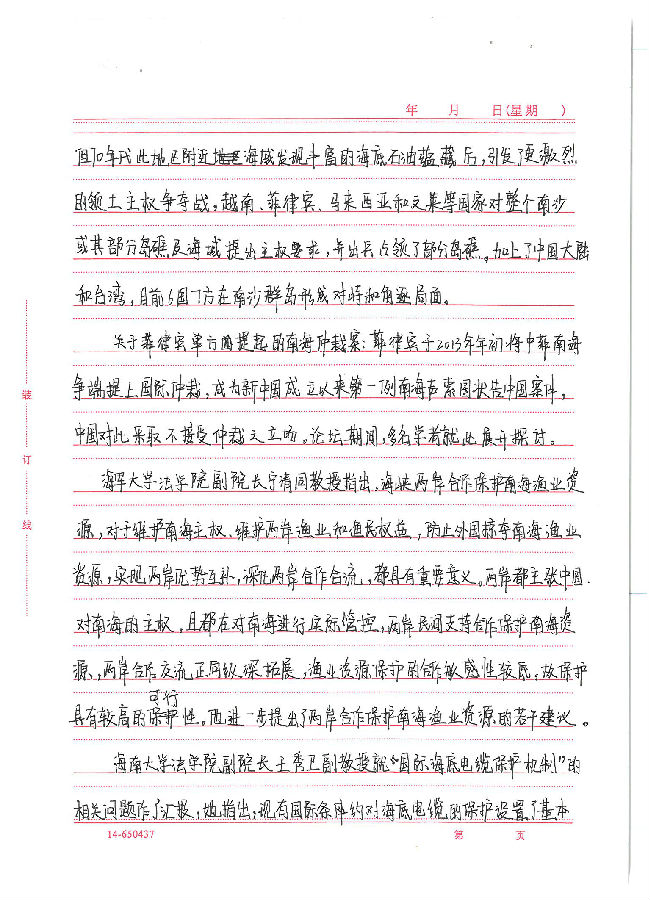 年 月 日(星期 )
但70年代此地区附近海域发现丰富的海底石油蕴藏后,引发了更激烈
的领土主权争夺战,越南、菲律宾、马来西亚和文莱等国家对整个南沙
或其部分岛礁及海域提出主权要求,并出兵占领了部分岛礁。加上了中国大陆
和台湾,目前6国7方在南沙群岛形成对峙和角逐局面。
关于菲律宾单方面提起的南海仲裁案:菲律宾于2013年年初将中菲南海
争端提上国际仲裁,成为新中国成立以来第一例南海声索国状告中国案件,
中国对此采取不接受仲裁之立场。论坛期间,多名学者就此展开探讨。
海军大学法学院副院长宁清同教授指出,海峡两岸合作保护南海渔业资
源,对于维护南海主权、维护两岸渔业和渔民权益,防止外国掠夺南海渔业
资源,实现两岸优势互补,深化两岸合作合流,都具有重要意义。两岸都主张中国
对南海的主权,且都在对南海进行实际管控,两岸民间支持合作保护南海资
源,两岸合作交流正向纵深拓展,渔业资源保护的合作敏感性较底,故保护
可行
具有较高的保护性。他进一步提出了两岸合作保护南海渔业资源的若干建议。
海南大学法学院副院长王秀卫副教授就“国际海底电缆保护机制”的
相关问题作了汇报,她指出:现有国际条件约对海底电缆的保护设置了基本
14-650437 第 页
装
订
线